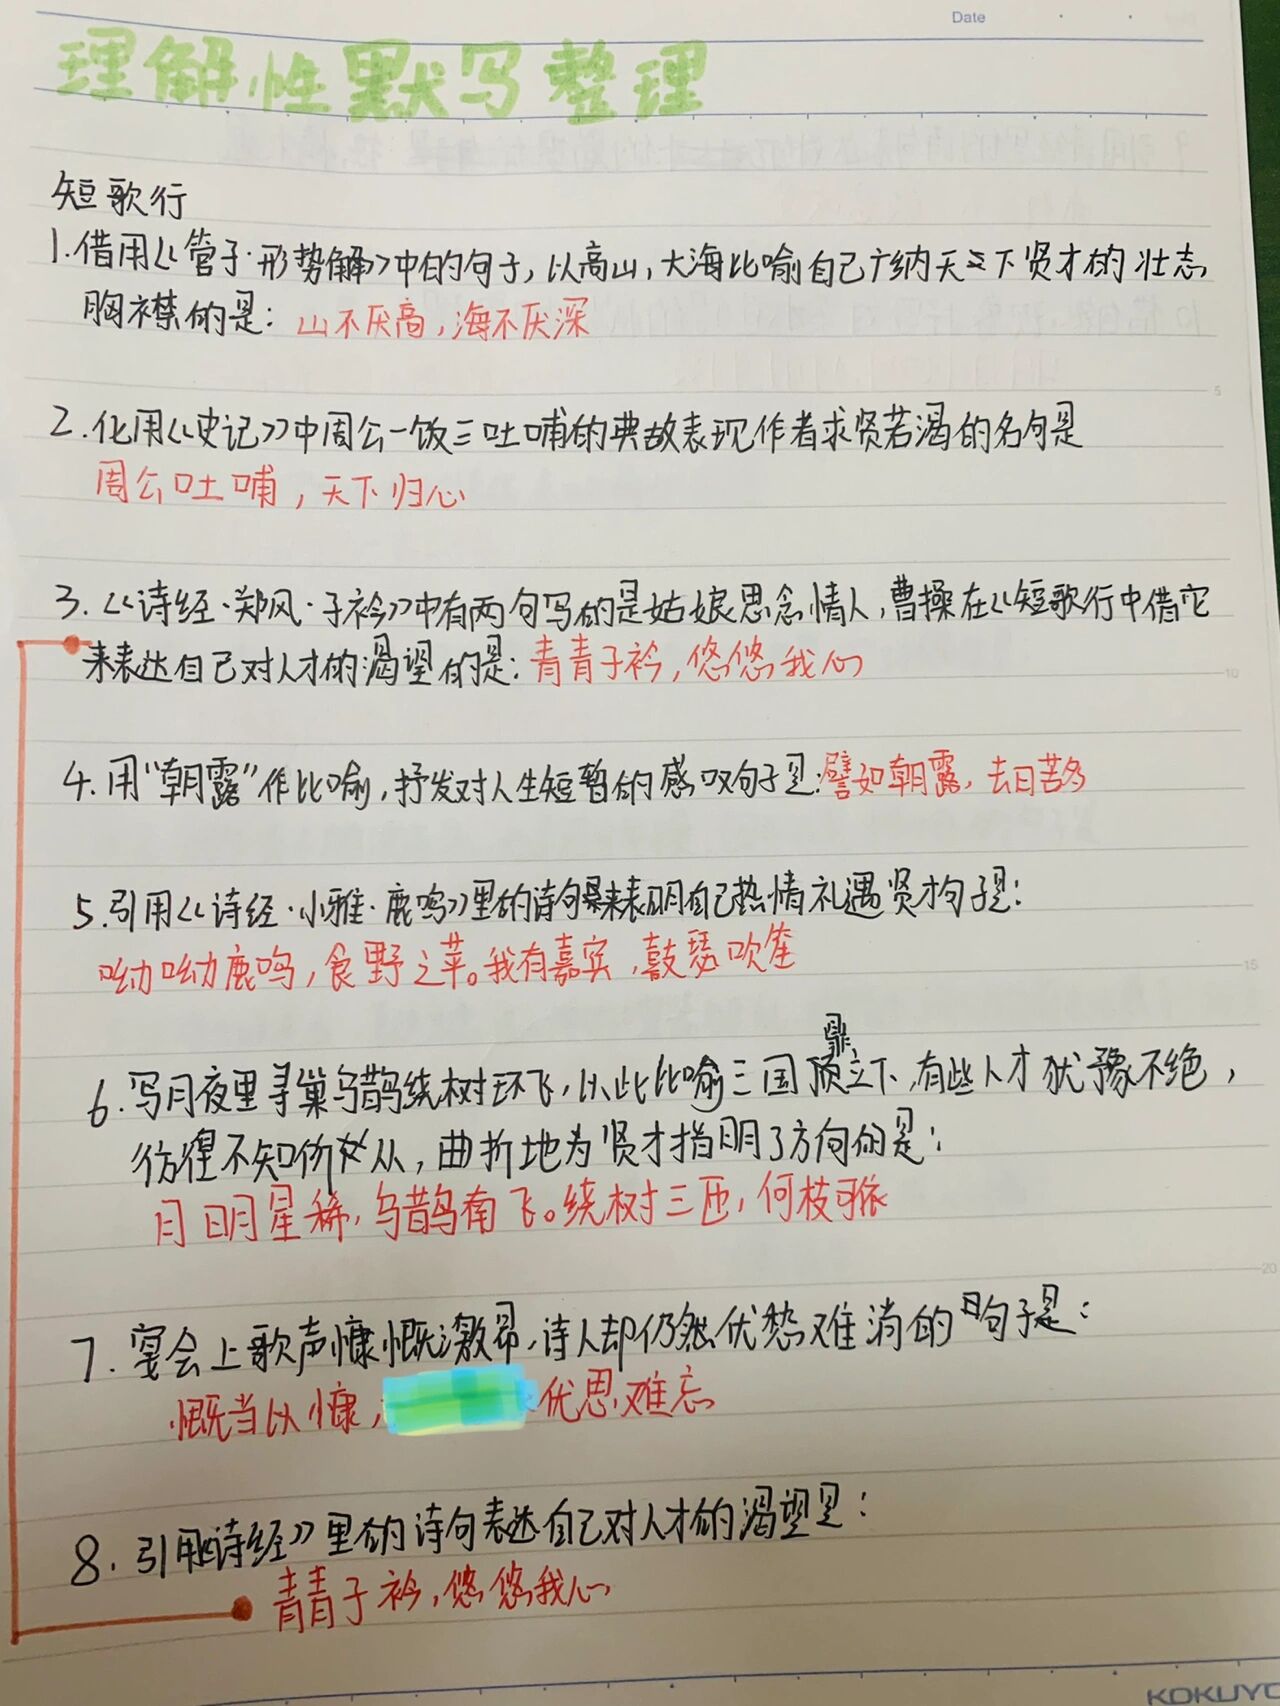 Date
理解性默写整理
短歌行
1.借用《管子·形势解》中的句子,以高山,大海比喻自己广纳天下贤才的壮志
胸襟的是:山不厌高,海不厌深
5
2.化用《史记》中周公一饭三吐哺的典故表现作者求贤若渴的名句是
周公吐哺,天下归心
3.《诗经·郑风·子衿》中有两句写的是姑娘思念情人,曹操在《短歌行中借它
来表达自己对人才的渴望的是:青青子衿,悠悠我心
10
4.用“朝露”作比喻,抒发对人生短暂的感叹句子是:譬如朝露,去日苦多
5.引用《诗经·小雅·鹿鸣》里的诗句来表明自己热情礼遇贤才句子是:
呦呦鹿鸣,食野之苹。我有嘉宾,鼓瑟吹笙
15
6.写月夜里寻巢乌鹊绕树环飞,以此比喻三国鼎立下,有些人才犹豫不绝,
彷徨不知所从,曲折地为贤才指明了方向的是:
月明星稀,乌鹊南飞。绕树三匝,何枝可依
20
7.宴会上歌声慷慨激昂,诗人却仍然忧愁难消的句子是:
慨当以慷,忧思难忘
8.引用《诗经》里的诗句表达自己对人才的渴望是:
青青子衿,悠悠我心
KOKUYO